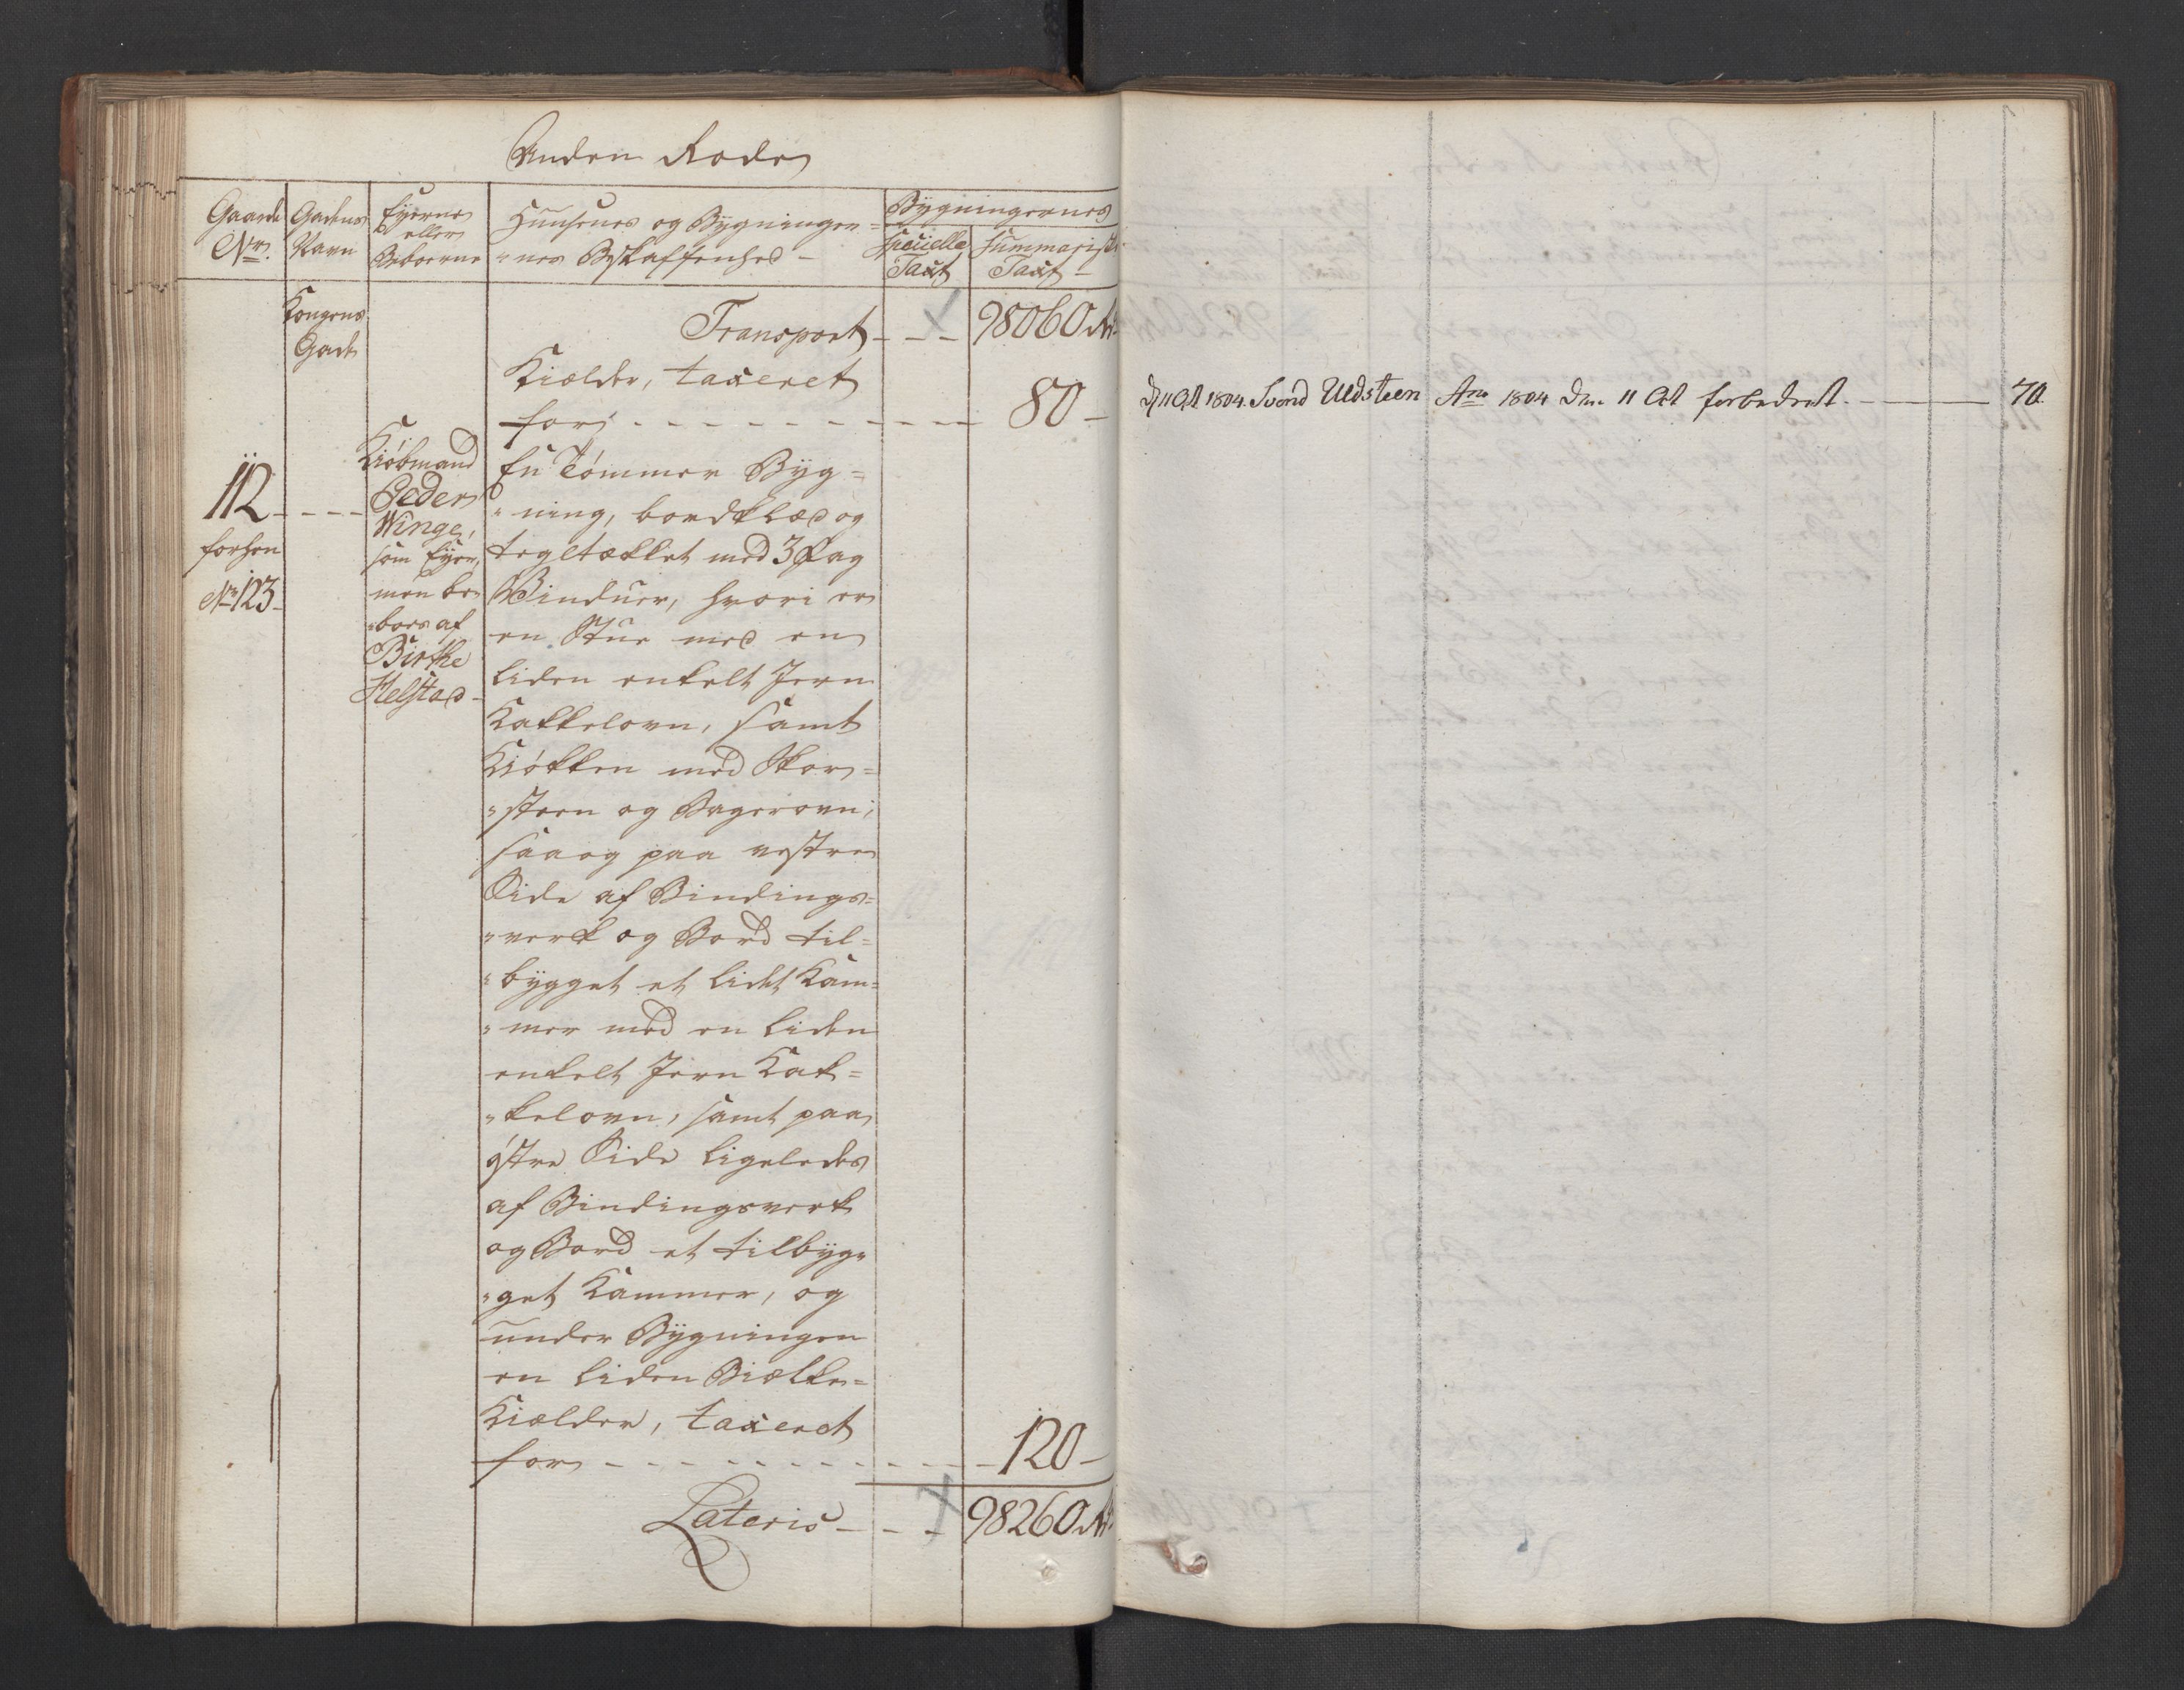 Anden Rode
Gaarde Nr.
Gadens Navn
Eyerne eller Beboerne
Huusenes og Bygninger=
"nes Beskaffenhed -
Bygningernes
Specielle Taxt
Summariske Taxt
Kongens Gade
Transport - - - 98060 Rd
Kielder, taxeret
for - - - - - - - - 80 -
112
forhen
No 123
Kiöbmand
Peder
Winge,
som Eyer,
men be-
"boes af
Birthe
Helstad
En Tömmer Byg=
"ning, bordklæd og
tegltækket med 3 Fag
Vinduer, hvori er
en Stue med en
liden enkelt Jern
Kakkelovn, samt
Kiökken med Skor=
"steen og Bagerovn;
saa og paa vestre
Side af Bindings=
"verk og Bord til=
"bygget et lidet Kam=
"mer med en liden
enkelt Jern Kak=
"kelovn, samt paa
östre Side ligeledes
af Bindingsverk
og Bord et tilbyg=
"get Kammer, og
under Bygningen
en liden Bielke=
Kielder, taxeret
for - - - - - - - - 120 -
Lateris - - - 98260 Rd
d 11 Oct 1804. Svend Udsteen Ano 1804 den 11 Oct forbedret. 70.